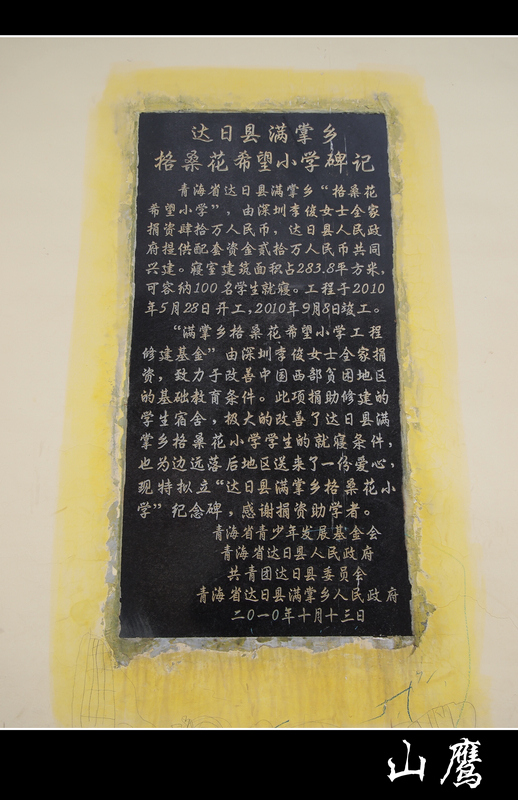 达日县满掌乡
格桑花希望小学碑记
青海省达日县满掌乡“格桑花
希望小学”，由深圳李俊女士全家
捐资肆拾万人民币，达日县人民政
府提供配套资金贰拾万人民币共同
兴建。寝室建筑面积占283.8平方米，
可容纳100名学生就寝。工程于2010
年5月28日开工，2010年9月8日竣工。
“满掌乡格桑花希望小学工程
修建基金”由深圳李俊女士全家捐
资，致力于改善中国西部贫困地区
的基础教育条件。此项捐助修建的
学生宿舍，极大的改善了达日县满
掌乡格桑花小学学生的就寝条件，
也为边远落后地区送来了一份爱心，
现特拟立“达日县满掌乡格桑花小
学”纪念碑，感谢捐资助学者。
青海省青少年发展基金会
青海省达日县人民政府
共青团达日县委员会
青海省达日县满掌乡人民政府
二〇一〇年十月十三日
山鹰